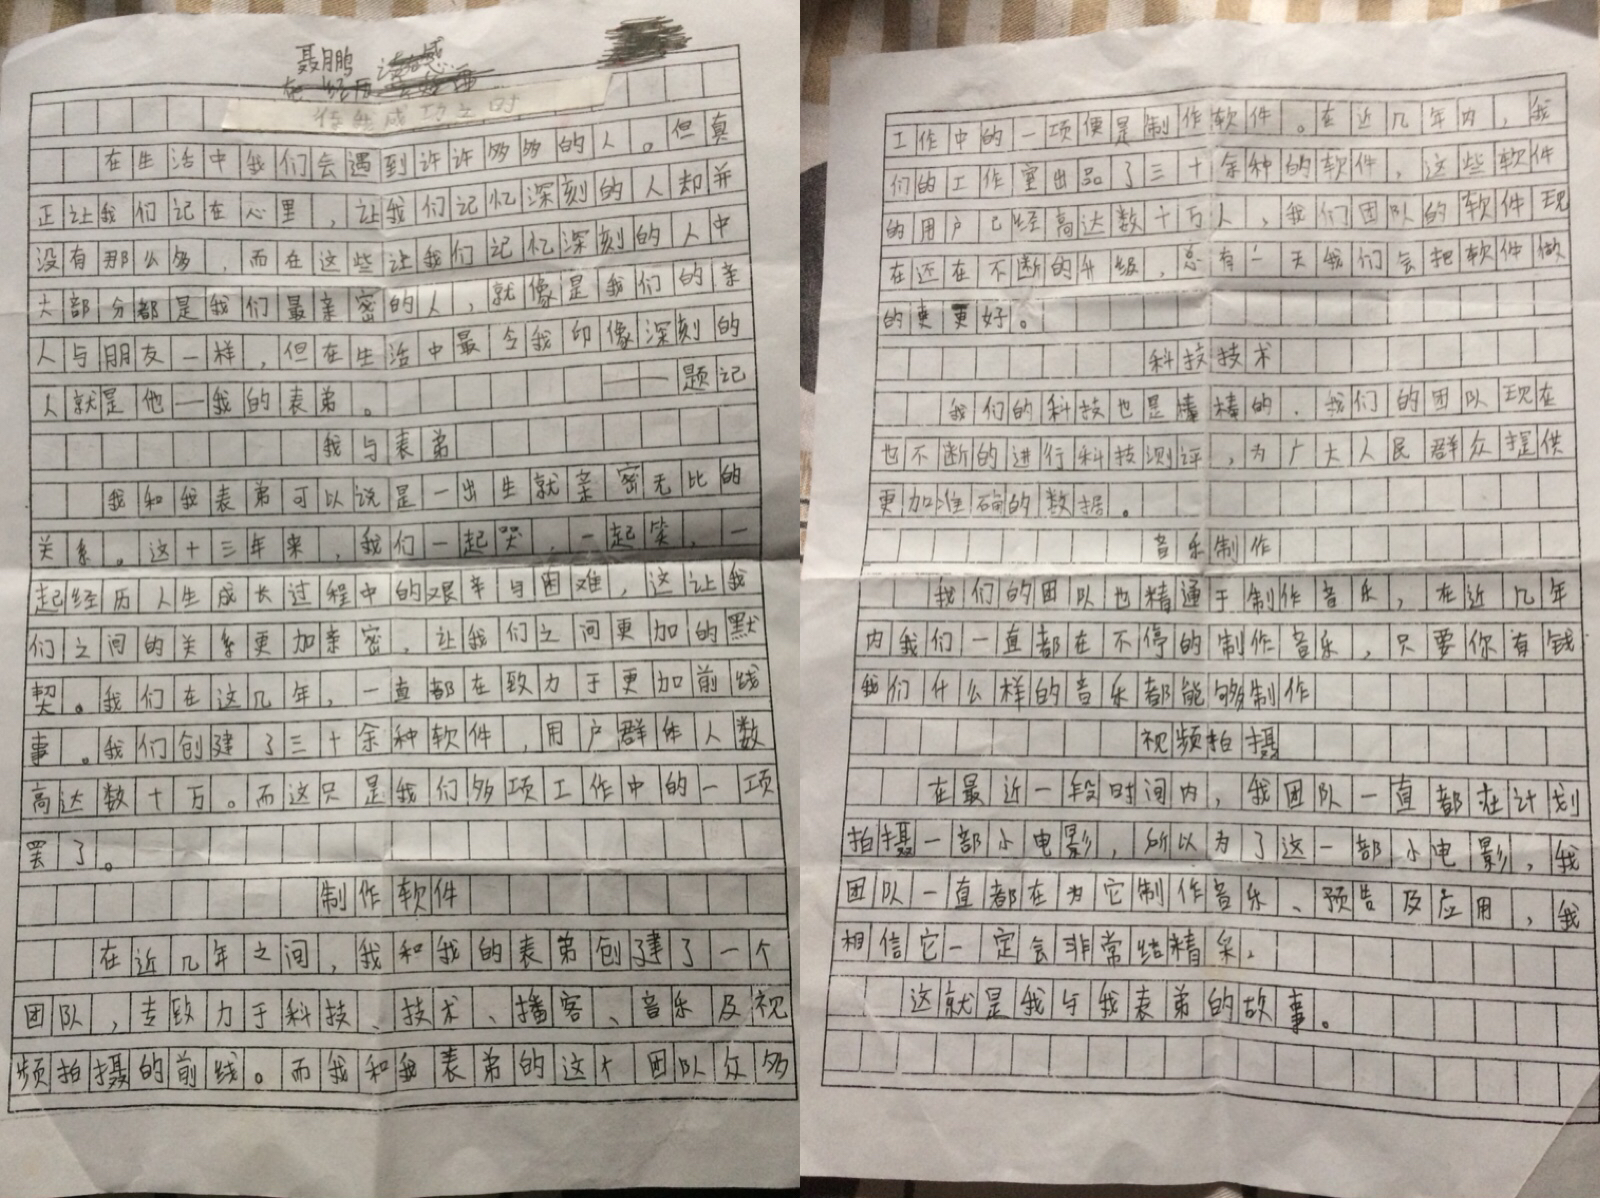 聂月鹏
在 经历
待我成功之时
在生活中我们会遇到许许多多的人。但真
正让我们记在心里，让我们记忆深刻的人却并
没有那么多，而在这些让我们记忆深刻的人中
大部分都是我们最亲密的人，就像是我们的亲
人与朋友一样，但在生活中最令我印像深刻的
人就是他——我的表弟。 ——题记
我与表弟
我和我表弟可以说是一出生就亲密无比的
关系。这十三年来，我们一起哭，一起笑，一
起经历人生成长过程中的艰辛与困难，这让我
们之间的关系更加亲密，让我们之间更加的默
契。我们在这几年，一直都在致力于更加前线
事。我们创建了三十余种软件，用户群体人数
高达数十万。而这只是我们多项工作中的一项
罢了。
制作软件
在近几年之间，我和我的表弟创建了一个
团队，专致力于科技、技术、播客、音乐及视
频拍摄的前线。而我和我表弟的这个团队众多
工作中的一项便是制作软件。在近几年内，我
们的工作室出品了三十余种的软件，这些软件
的用户已经高达数十万人，我们团队的软件现
在还在不断的升级，总有一天我们会把软件做
的更好。
科技技术
我们的科技也是棒棒的，我们的团队现在
也不断的进行科技测评，为广大人民群众提供
更加准确的数据。
音乐制作
我们的团队也精通于制作音乐，在近几年
内我们一直都在不停的制作音乐，只要你有钱
我们什么样的音乐都能够制作
视频拍摄
在最近一段时间内，我团队一直都在计划
拍摄一部小电影，所以为了这一部小电影，我
团队一直都在为它制作音乐、预告及应用，我
相信它一定会非常结精采，
这就是我与我表弟的故事。